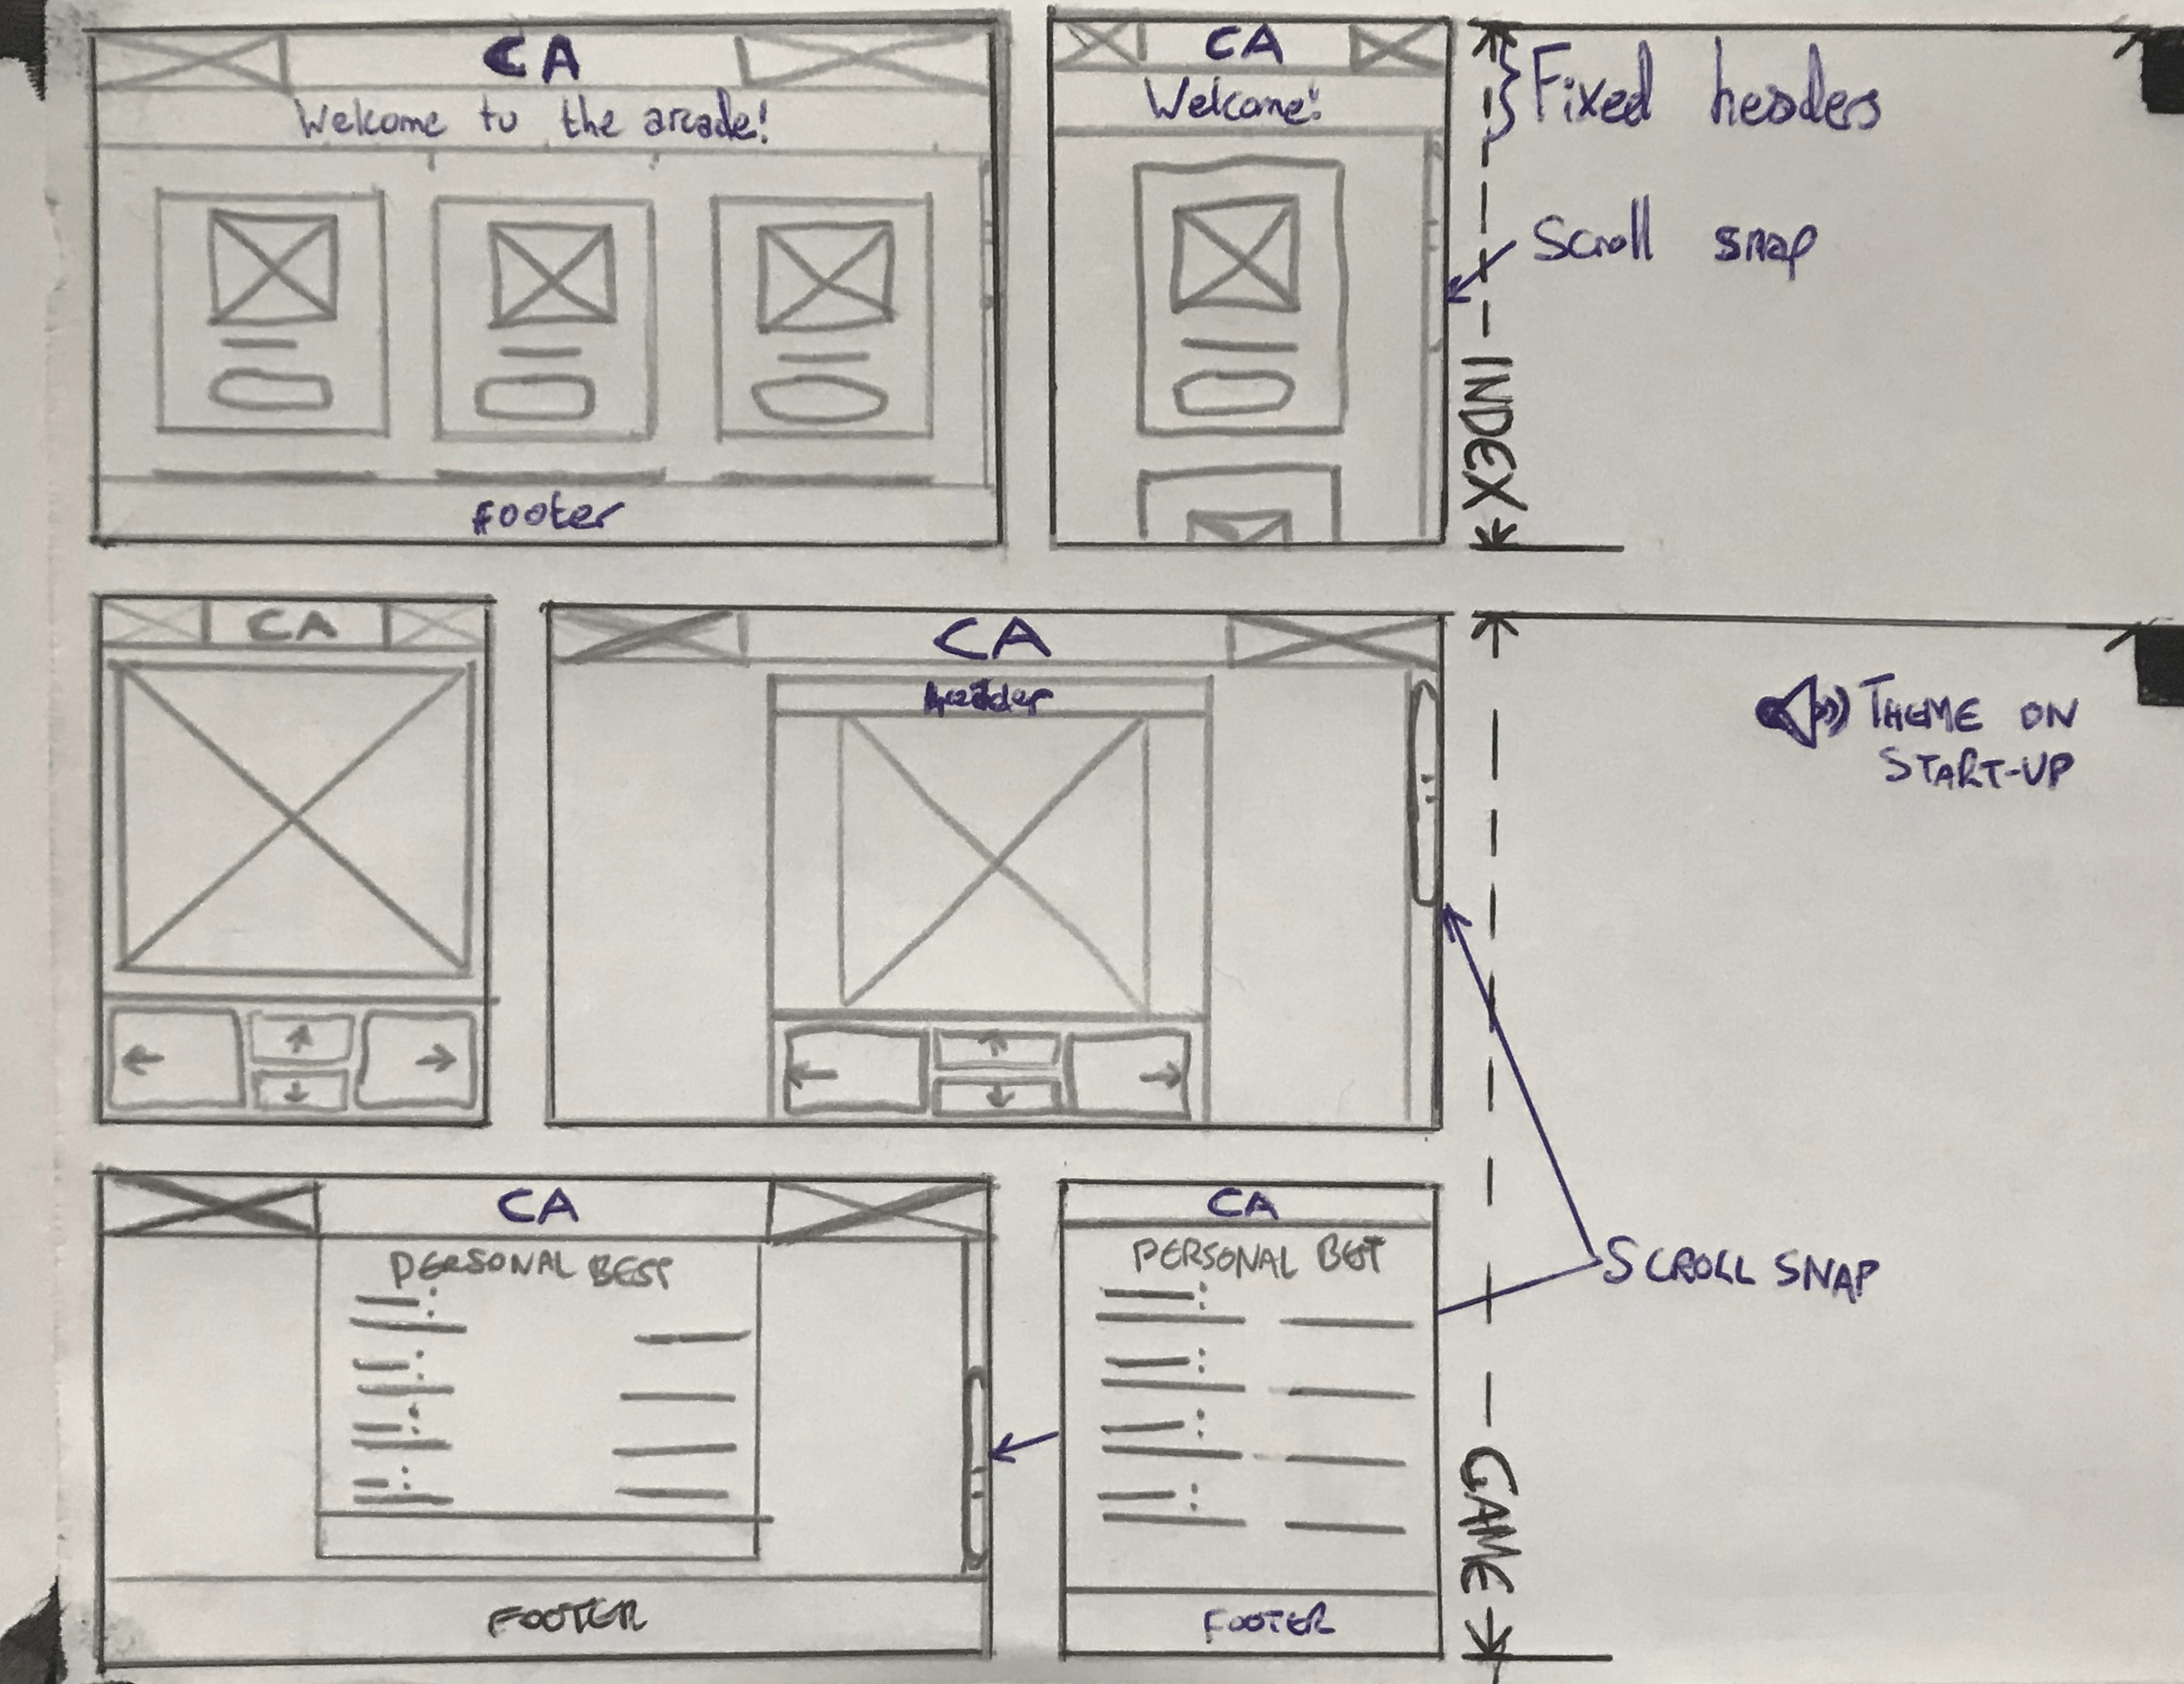 CA
Welcome to the arcade!
footer
CA
Welcome!
Fixed headers
Scroll snap
INDEX
CA
CA
header
THEME ON
START-UP
CA
PERSONAL BEST
FOOTER
CA
PERSONAL BET
FOOTER
SCROLL SNAP
GAME